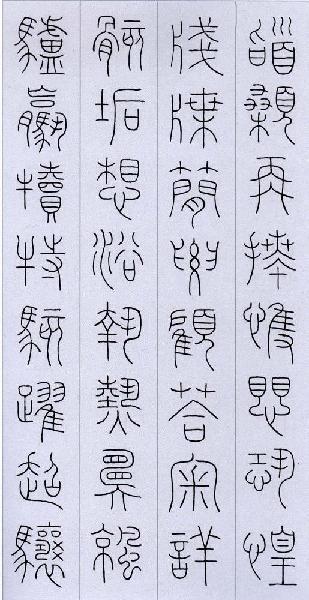 稽顙再拜悚懼恐惶
牋牒簡要顧答審詳
骸垢想浴執熱願涼
驢騾犢特駭躍超驤